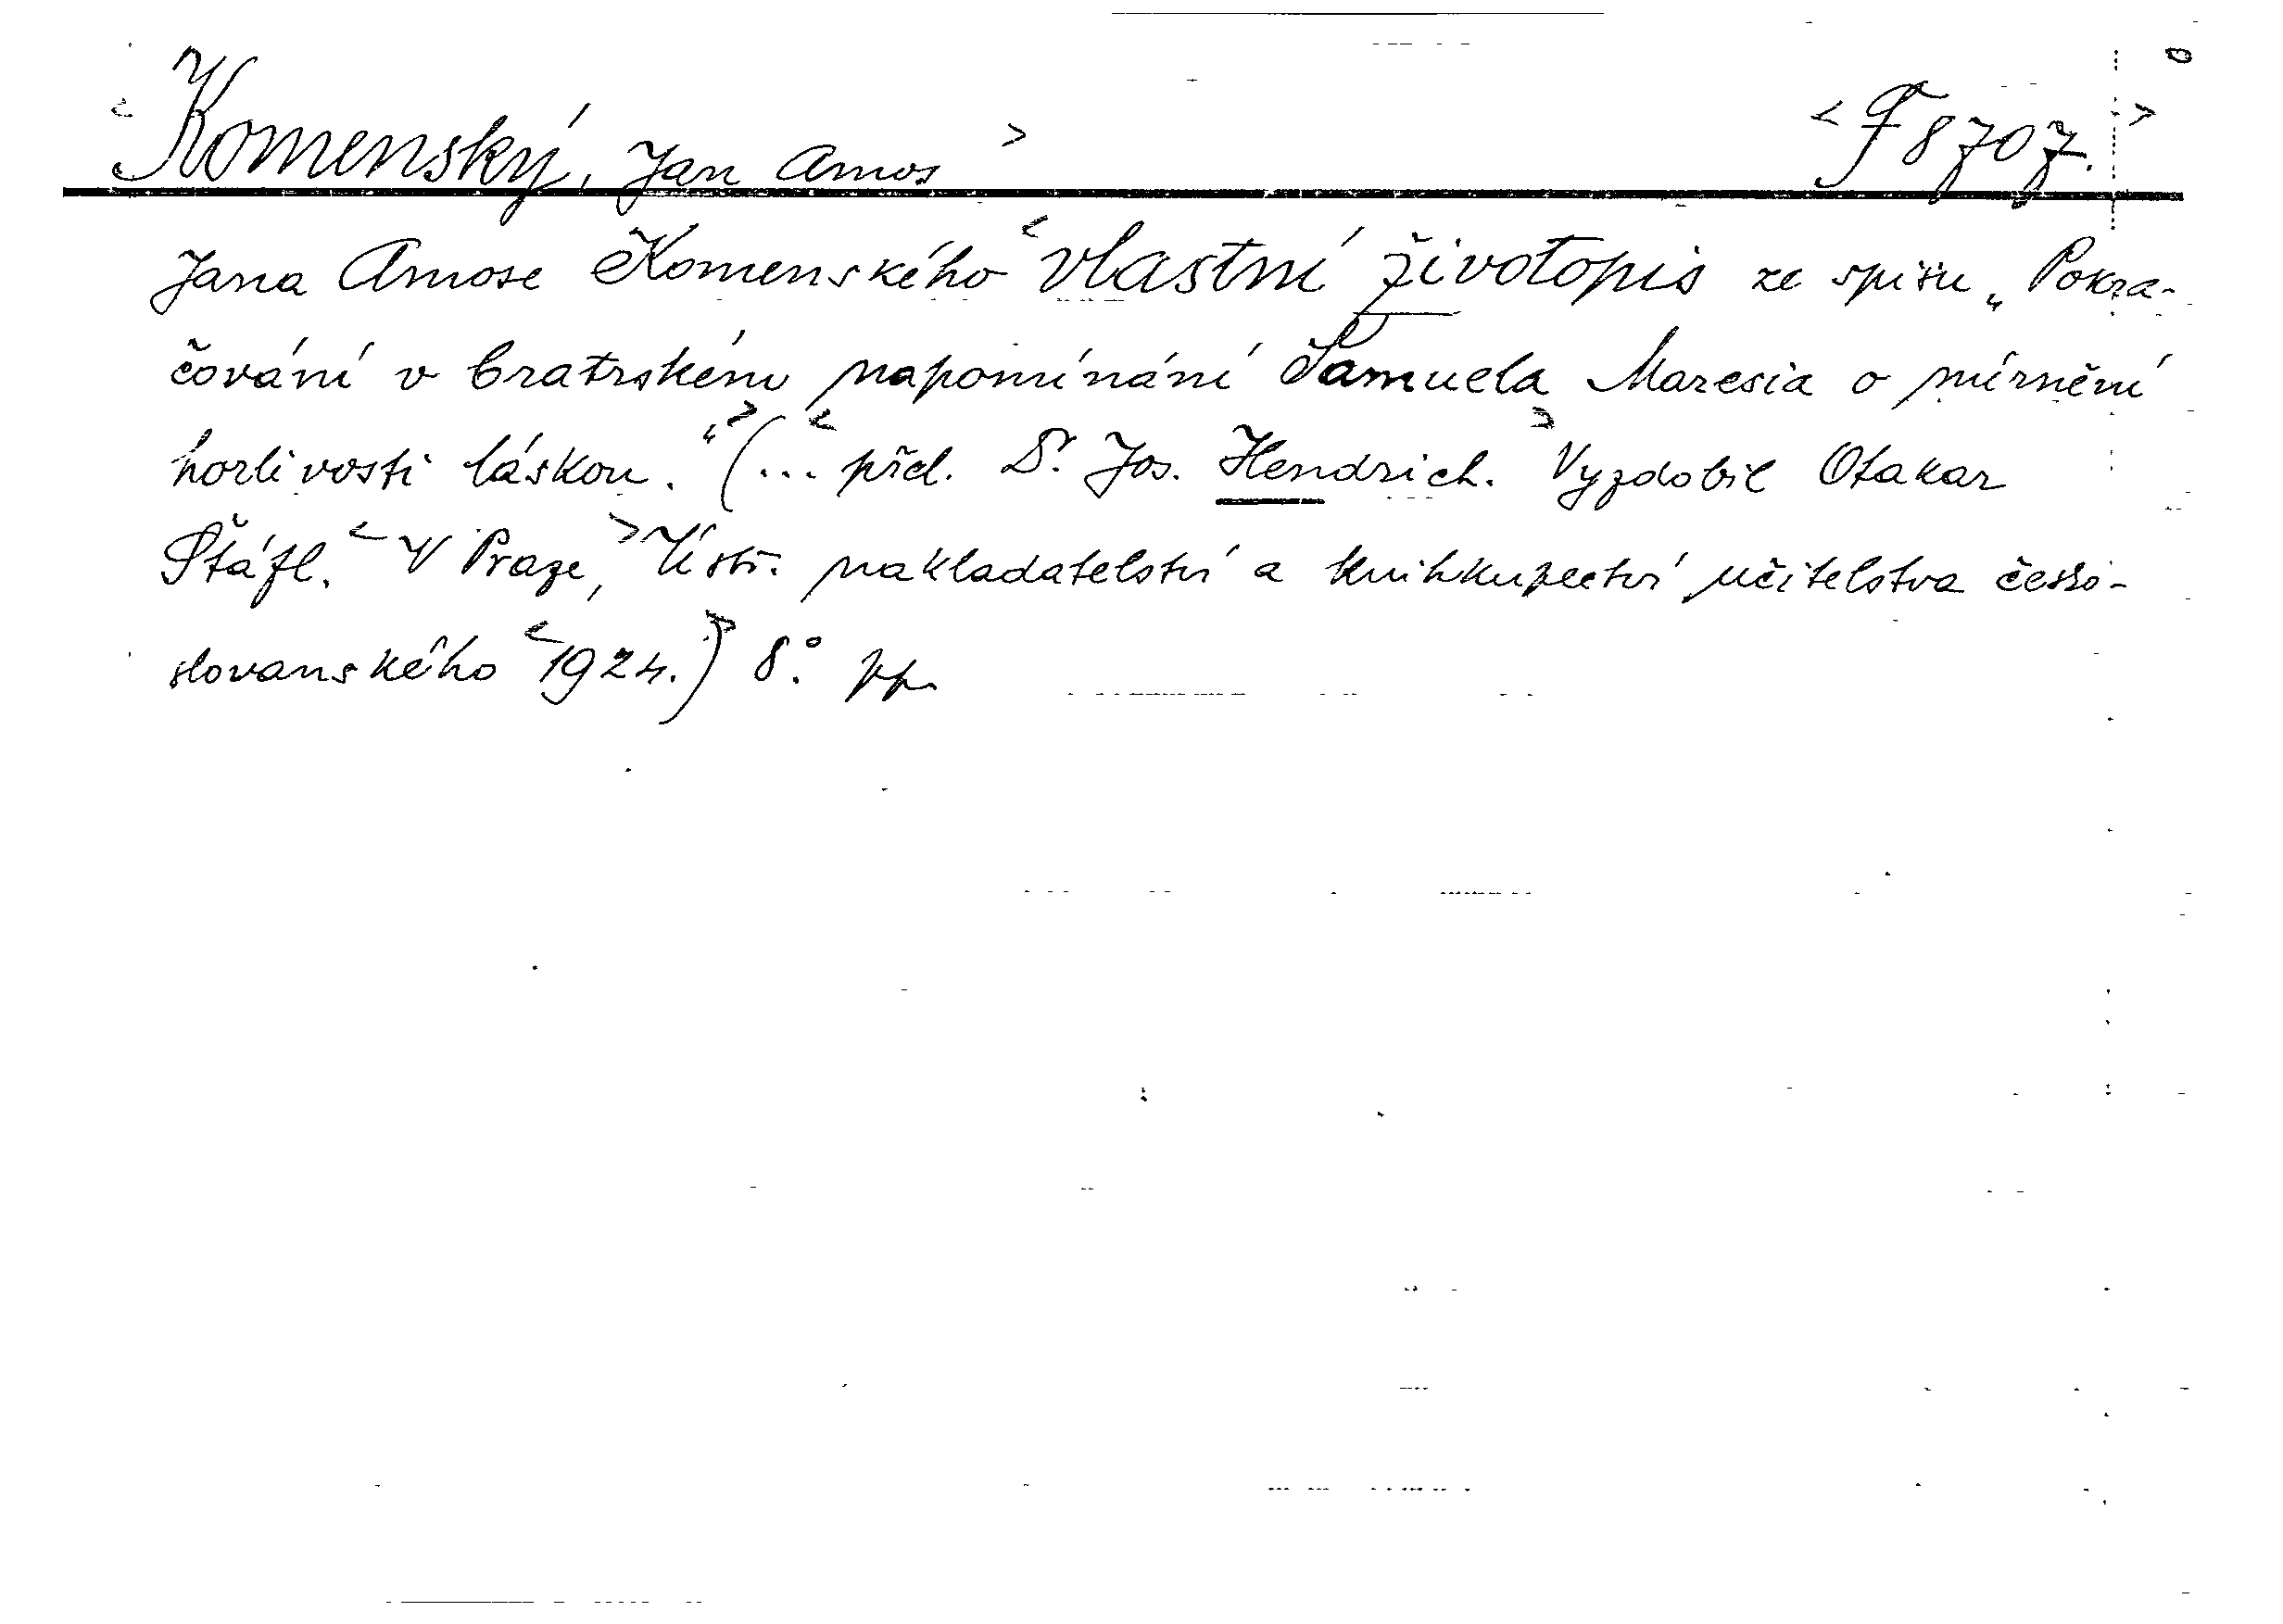 <Komenský, Jan Amos> <F 8707.>
Jana Amose Komenského <vlastní životopis ze spisu „Pokra-
čování v bratrském napomínání Samuela Maresia o mírnění
horlivosti láskou.“> (...< přel. Dr. Jos. Hendrich.> Vyzdobil Otakar
Štáfl. <V Praze,> Ústř. nakladatelství a knihkupectví učitelstva česko-
slovanského <1924.>) 8°. pp.